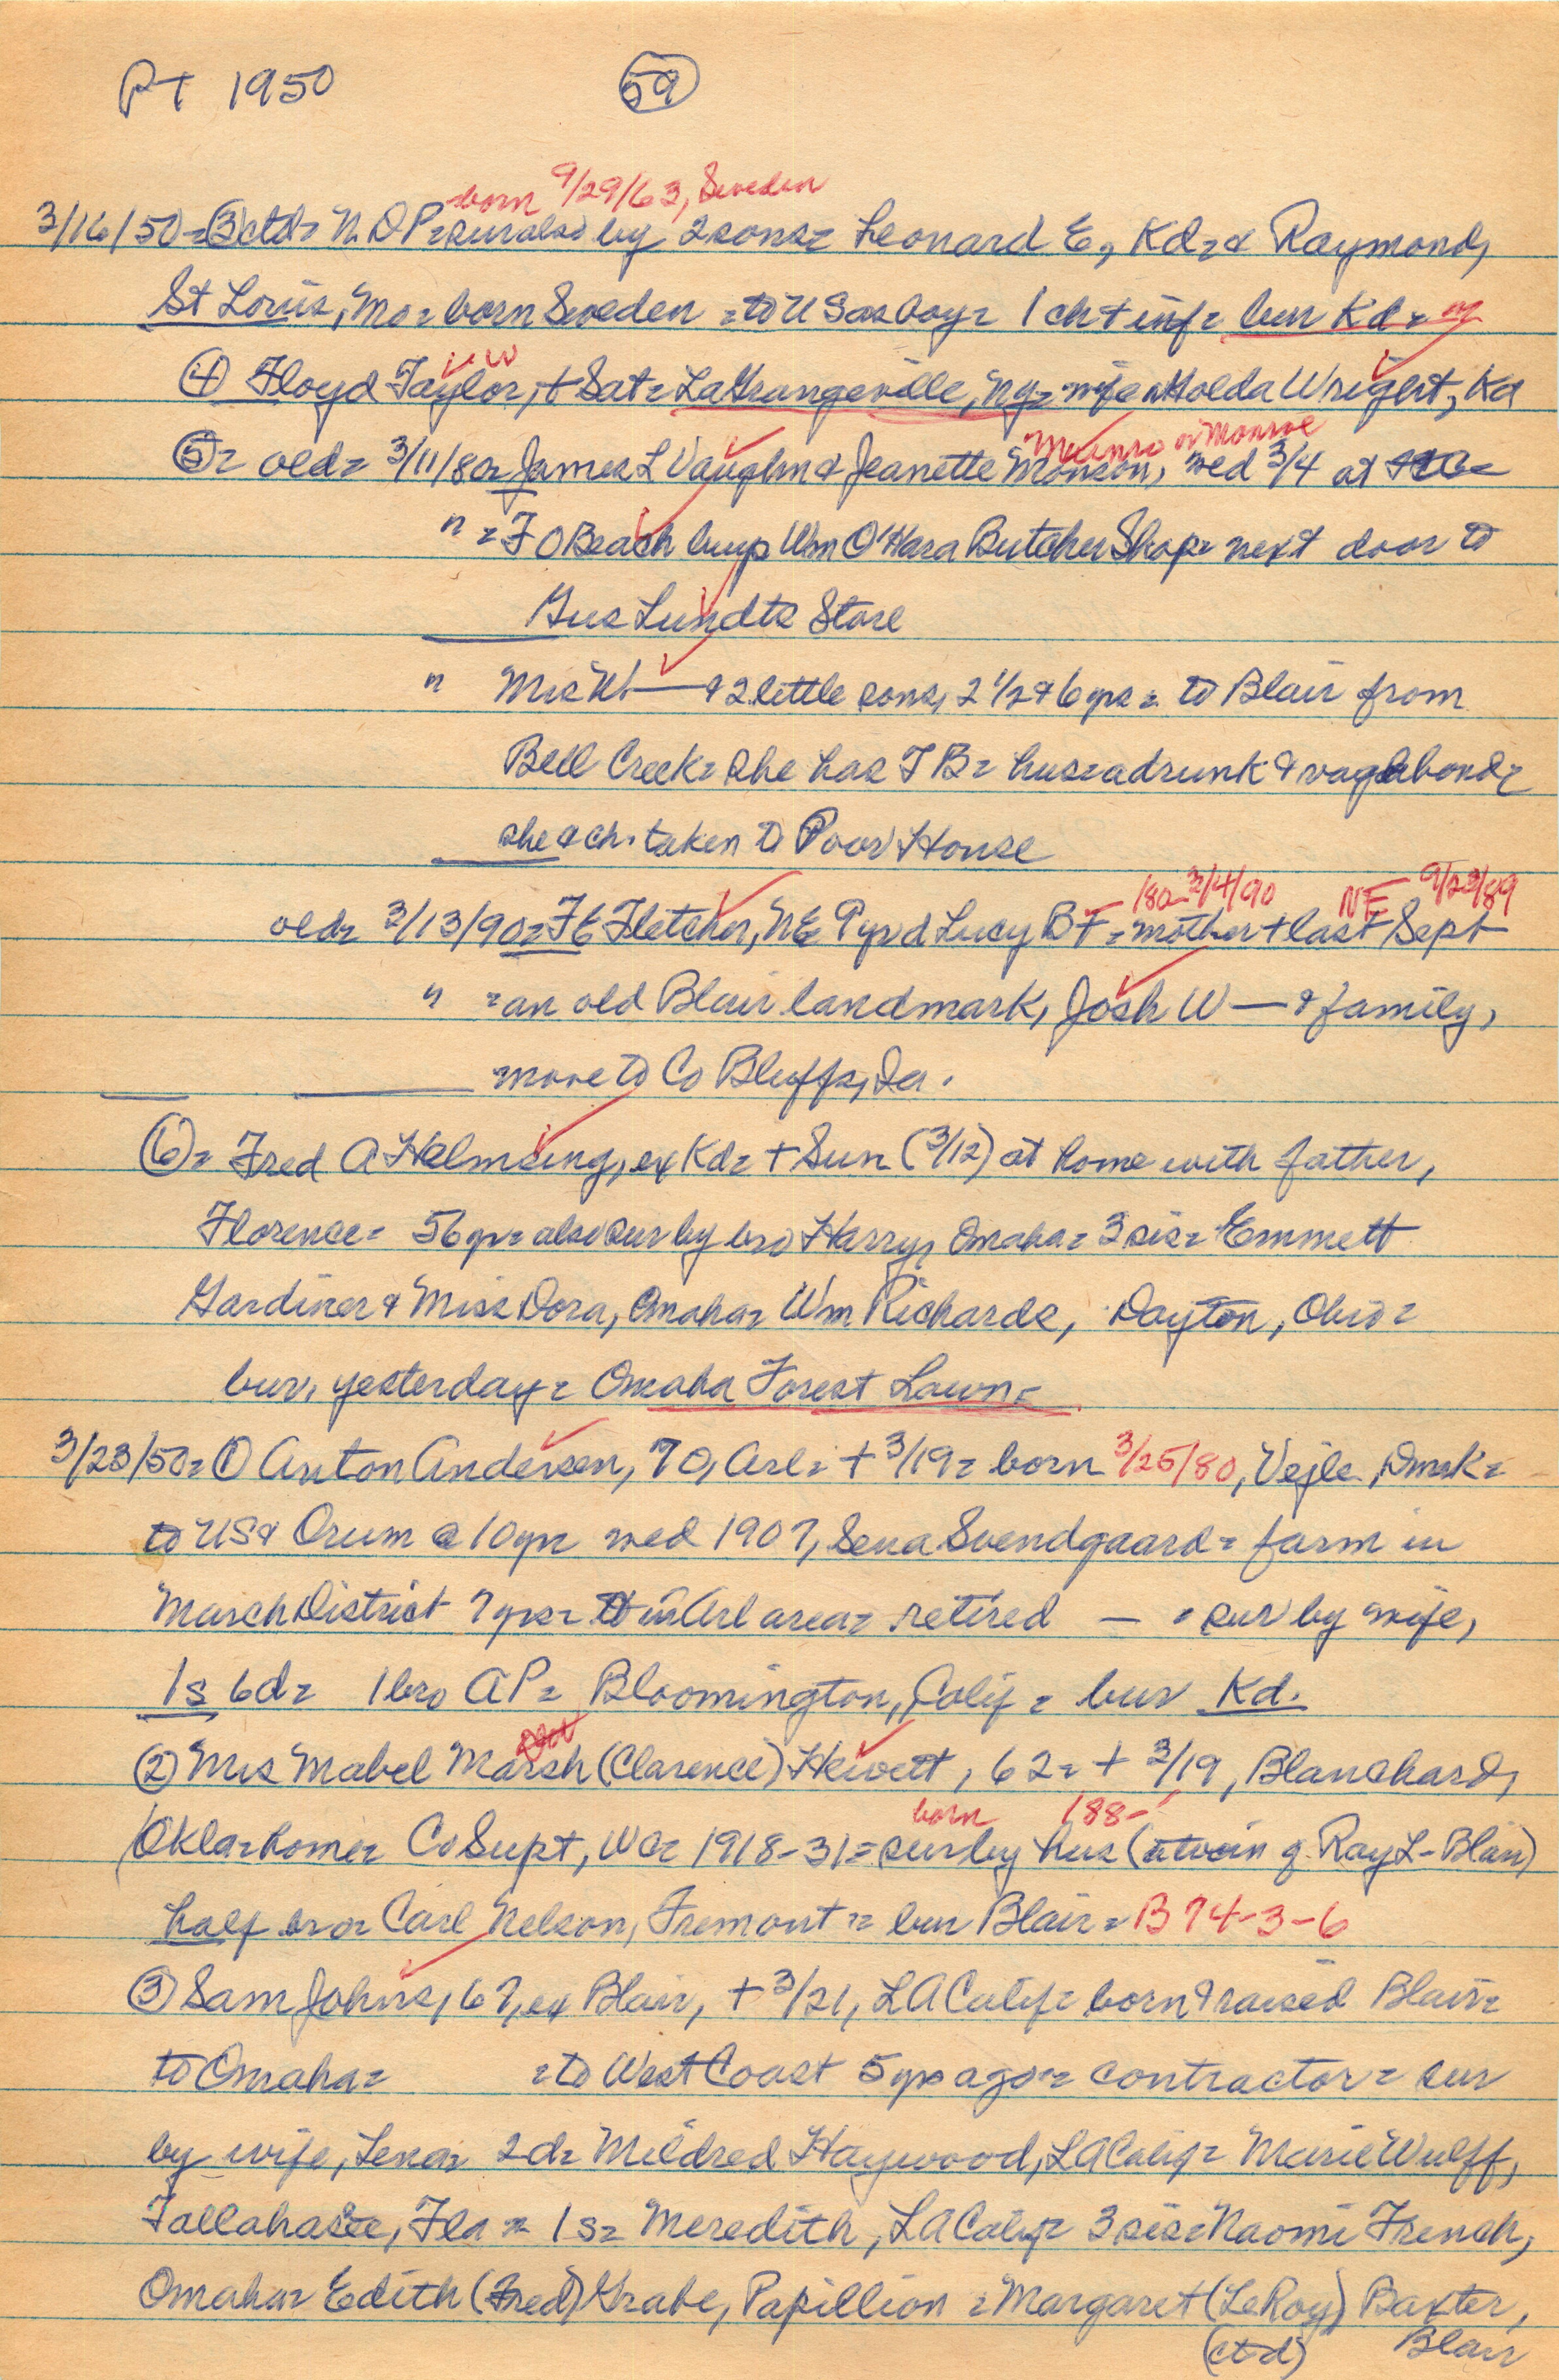 PT 1950 59
born 9/29/63, Sweden
3/16/50= 3 ctd= N. O P= sur also by 2 sons= Leonard E, Kd= & Raymond,
St Louis, Mo= born Sweden = to US as boy= 1 ch + inf= bur Kd=
4 Floyd Taylor, + Sat= LaGrangeville, Ny= wife Holda Wright, Kd
Munro or Monroe
5= old= 3/11/80= James L Vaughn & Jeanette Monson, wed 3/4 at
" = F O Beach buys Wm O'Hara Butcher Shop= next door to
Gus Lundts Store
" Mrs W— & 2 little sons, 2 1/2 & 6 yrs= to Blair from
Bell Creek= she has TB= hus= a drunk & vagabond=
she & ch. taken to Poor House
180 3/4/90 NE 9/23/89
old= 3/13/90= F E Fletcher, NE Pyrd Lucy B F= mother + last Sept
" = an old Blair landmark, Josh W— & family,
move to Co Bluffs, Ia.
6= Fred A Helmsing, ex Kd= + Sun (3/12) at home with father,
Florence= 56 yr= also sur by bro Harry, Omaha= 3 sis= Emmett
Gardiner & Miss Dora, Omaha= Wm Richards, Dayton, Ohio=
bur. yesterday= Omaha Forest Lawn=
3/23/50= 1 Anton Andersen, 70, Arl= + 3/19= born 3/25/80, Vejle, Dmrk=
to US & Orum @ 10 yr= wed 1907, Sena Svendgaard= farm in
Marsch District 7 yrs= in Arl area= retired — = sur by wife,
1 s 6 d= 1 bro A P= Bloomington, Calif= bur Kd.
2 Mrs Mabel Marsh (Clarence) Hewett, 62= + 3/19, Blanchard,
born 188-
Okla= home= Co Supt, WC= 1918-31= sur by hus (a twin of Ray L- Blair)
half bro= Carl Nelson, Fremont= bur Blair= B 74-3-6
3 Sam Johns, 67, ex Blair, + 3/21, LA Calif= born & raised Blair=
to Omaha= = to West Coast 5 yrs ago= contractor= sur
by wife, Lena= 2 d= Mildred Haywood, LA Calif= Marie Wulff,
Tallahassee, Fla= 1 s= Meredith, LA Calif= 3 sis= Naomi French,
Omaha= Edith (Fred) Grabe, Papillion = Margaret (LeRoy) Baxter,
(ctd) Blair